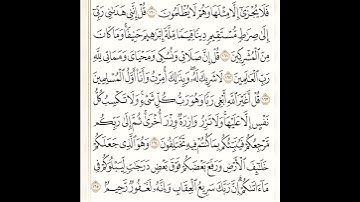 فَلَا يُجْزَىٰٓ إِلَّا مِثْلَهَا وَهُمْ لَا يُظْلَمُونَ ١٦٠ قُلْ إِنَّنِى هَدَىٰنِى رَبِّىٓ
إِلَىٰ صِرَٰطٍ مُّسْتَقِيمٍ دِينًا قِيَمًا مِّلَّةَ إِبْرَٰهِيمَ حَنِيفًا وَمَا كَانَ
مِنَ ٱلْمُشْرِكِينَ ١٦١ قُلْ إِنَّ صَلَاتِى وَنُسُكِى وَمَحْيَاىَ وَمَمَاتِى لِلَّهِ
رَبِّ ٱلْعَٰلَمِينَ ١٦٢ لَا شَرِيكَ لَهُۥ وَبِذَٰلِكَ أُمِرْتُ وَأَنَا۠ أَوَّلُ ٱلْمُسْلِمِينَ
١٦٣ قُلْ أَغَيْرَ ٱللَّهِ أَبْغِى رَبًّا وَهُوَ رَبُّ كُلِّ شَىْءٍ وَلَا تَكْسِبُ كُلُّ
نَفْسٍ إِلَّا عَلَيْهَا وَلَا تَزِرُ وَازِرَةٌ وِزْرَ أُخْرَىٰ ثُمَّ إِلَىٰ رَبِّكُم
مَّرْجِعُكُمْ فَيُنَبِّئُكُم بِمَا كُنتُمْ فِيهِ تَخْتَلِفُونَ ١٦٤ وَهُوَ ٱلَّذِى جَعَلَكُمْ
خَلَٰٓئِفَ ٱلْأَرْضِ وَرَفَعَ بَعْضَكُمْ فَوْقَ بَعْضٍ دَرَجَٰتٍ لِّيَبْلُوَكُمْ فِى
مَآ ءَاتَىٰكُمْ إِنَّ رَبَّكَ سَرِيعُ ٱلْعِقَابِ وَإِنَّهُۥ لَغَفُورٌ رَّحِيمٌۢ ١٦٥